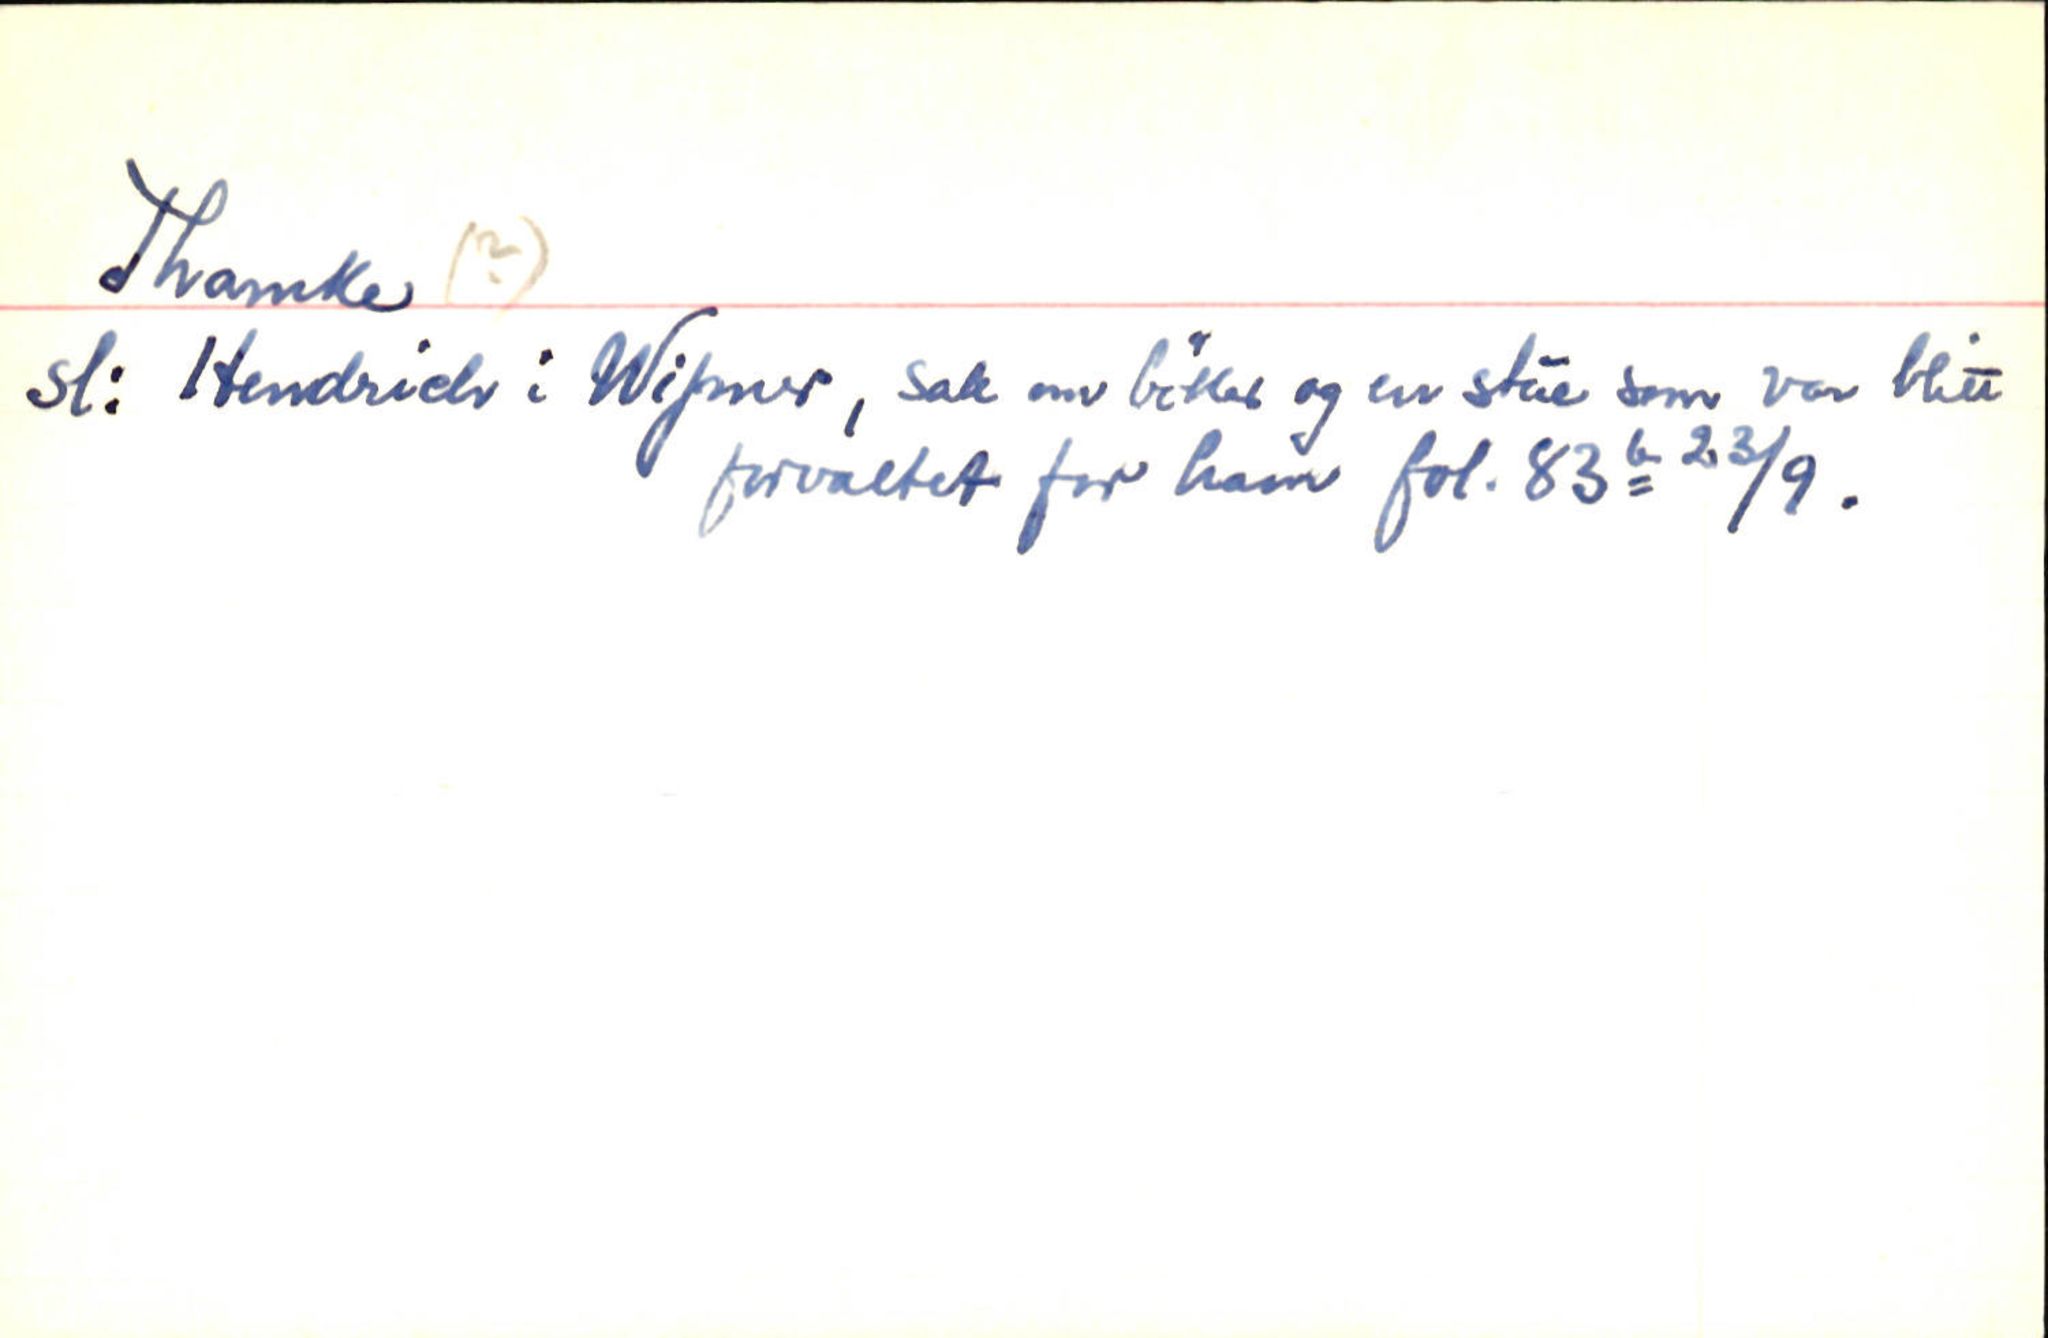 Thramke (?)
sl: Hendrich i Wißmer, sak om böker og en stūe som var blitt
forvaltet for ham fol. 83b 23/9.